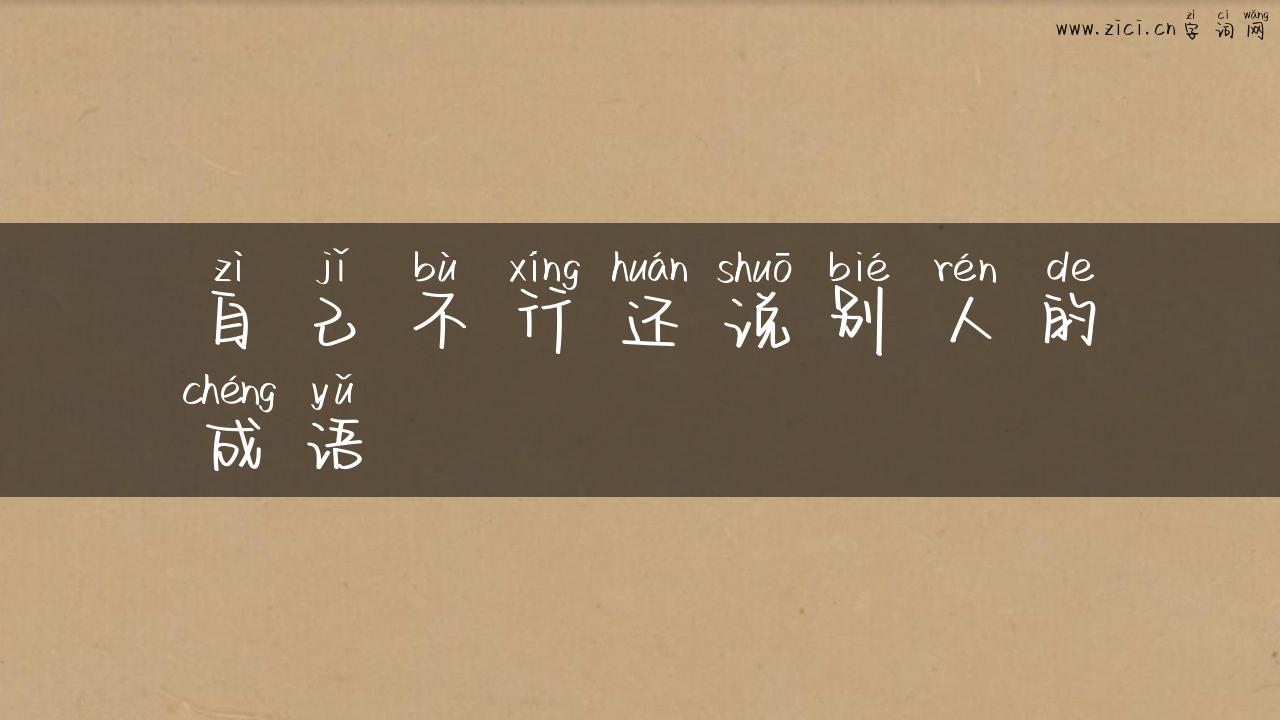 zì cí wǎng
www.zici.cn 字 词 网
zì jǐ bù xíng huán shuō bié rén de
自 己 不 行 还 说 别 人 的
chéng yǔ
成 语